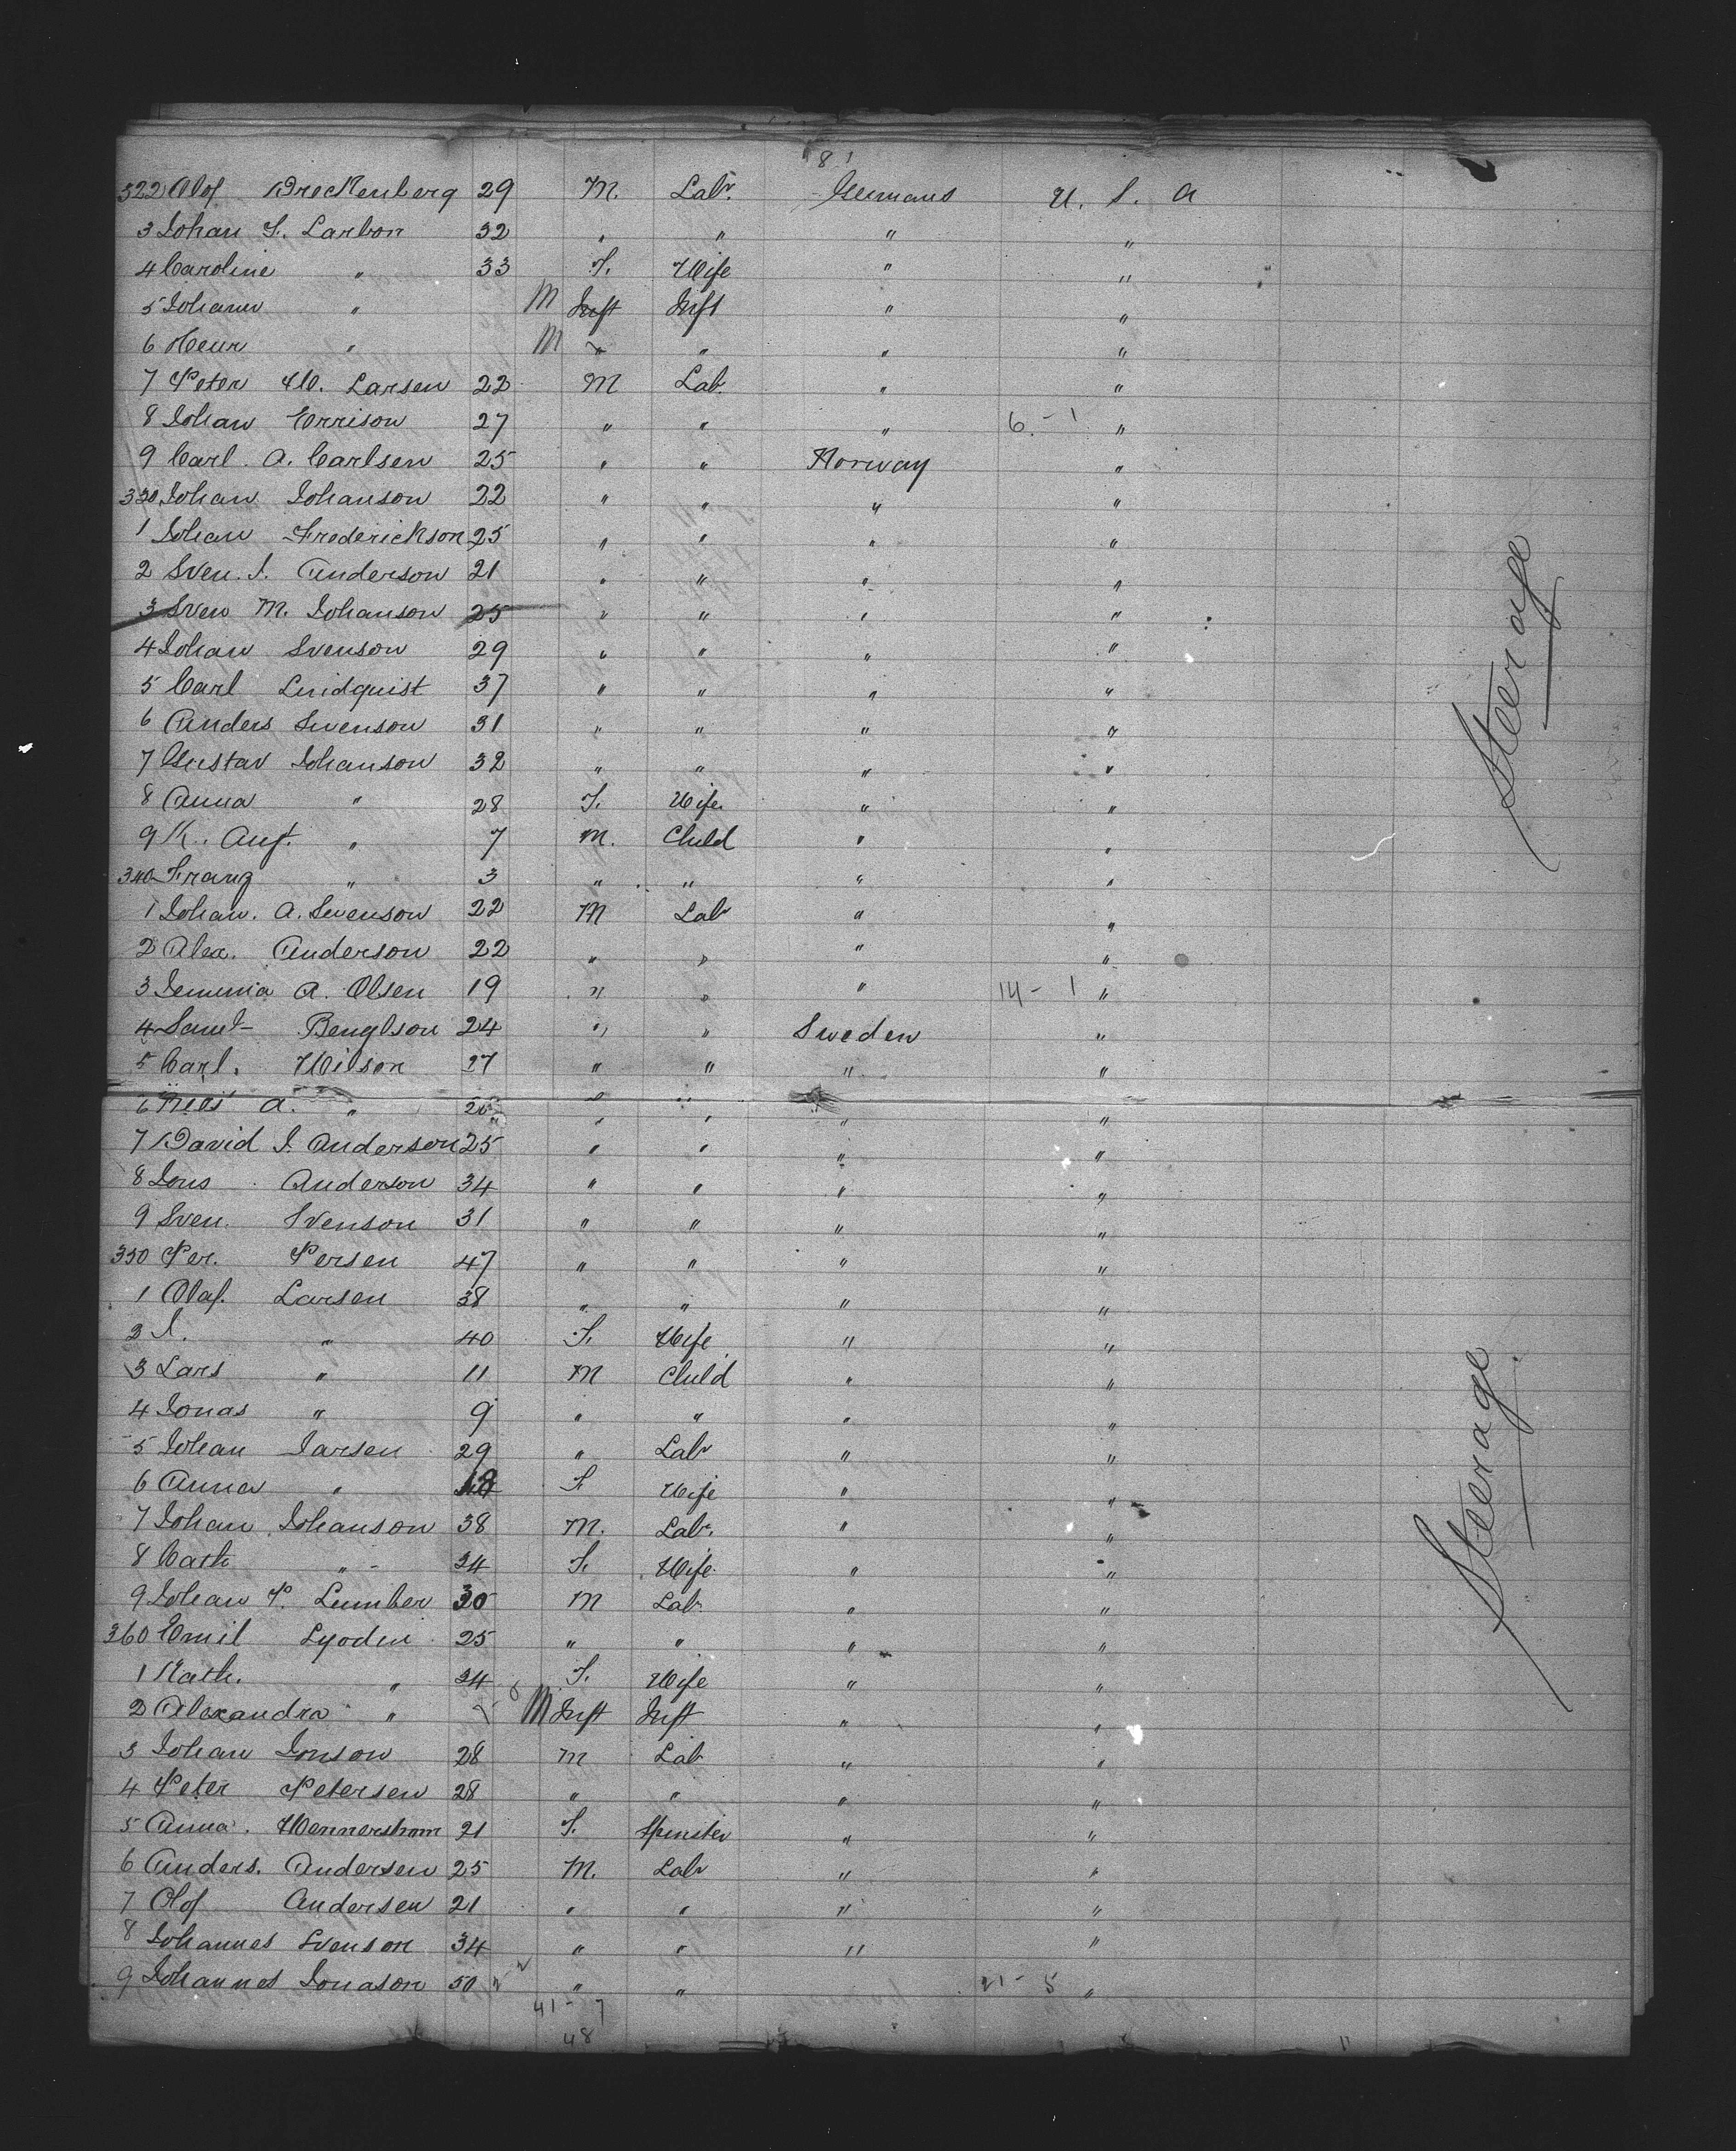 8 1
322 Olof Dreckenberg 29 M. Labr. Germans U. S. A
3 Johan F. Larbon 32 " " " "
4 Caroline " 33 F. Wife " "
5 Johann " M Inft Inft " "
6 " M " " " "
7 Peter W. Larsen 22 M Lab. " "
8 Johan Errison 27 " " " 6 - 1 "
9 Carl. A. Carlsen 25 " " Norway "
330 Johan Johanson 22 " " " "
1 Johan Frederickson 25 " " " "
2 Sven. J. Anderson 21 " " " "
3 Sven M. Johanson 25 " " " "
4 Johan Svenson 29 " " " "
5 Carl Lindquist 37 " " " "
6 Anders Swenson 31 " " " "
7 Gustav Johanson 32 " " " "
8 Anna " 28 F. Wife " "
9 K. Aug. " 7 M. Child " "
340 Franz " 3 " " " "
1 Johan. A. Swenson 22 M Labr " "
2 Alex. Anderson 22 " " " "
3 Jemima A. Olsen 19 " " " 14 - 1 "
4 Saml Benglson 24 " " Sweden "
5 Carl. Wilson 27 " " " "
6 A. " " " " "
7 David J. Anderson 25 " " " "
8 Jons Anderson 34 " " " "
9 Sven. Svenson 31 " " " "
350 Per. Persen 47 " " " "
1 Olaf. Larsen 38 " " " "
2 I. " 40 F. Wife " "
3 Lars " 11 M Child " "
4 Jonas " 9 " " " "
5 Johan Jarsen 29 " Labr " "
6 Anna " F. Wife " "
7 Johan Johanson 38 M. Labr. " "
8 Cath " 34 F. Wife " "
9 Johan P. Lumber 30 M Lab. " "
360 Emil Lyodin 25 " " " "
1 Kath. " 24 F. Wife " "
2 Alexandra " M Inft Inft " "
3 Johan Jonson 28 M Lab " "
4 Peter Petersen 28 " " " "
5 Anna. Wennerstrom 21 F. Spinster " "
6 Anders. Andersen 25 M. Labr " "
7 Olof Andersen 21 " " " "
8 Johannes Svenson 34 " " " "
9 Johannes Jonason 50 " " 21 - 5 "
41 - 7
48
11
Steerage
Steerage